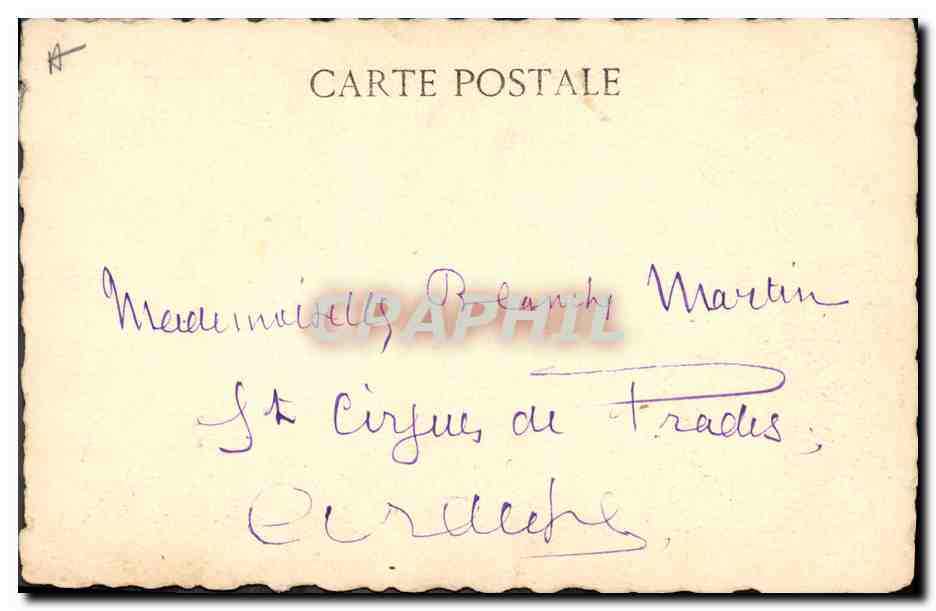 A
CARTE POSTALE
CPAPHIL
Mademoiselle Blanche Martin
St Cirgues de Prades,
Ardèche.